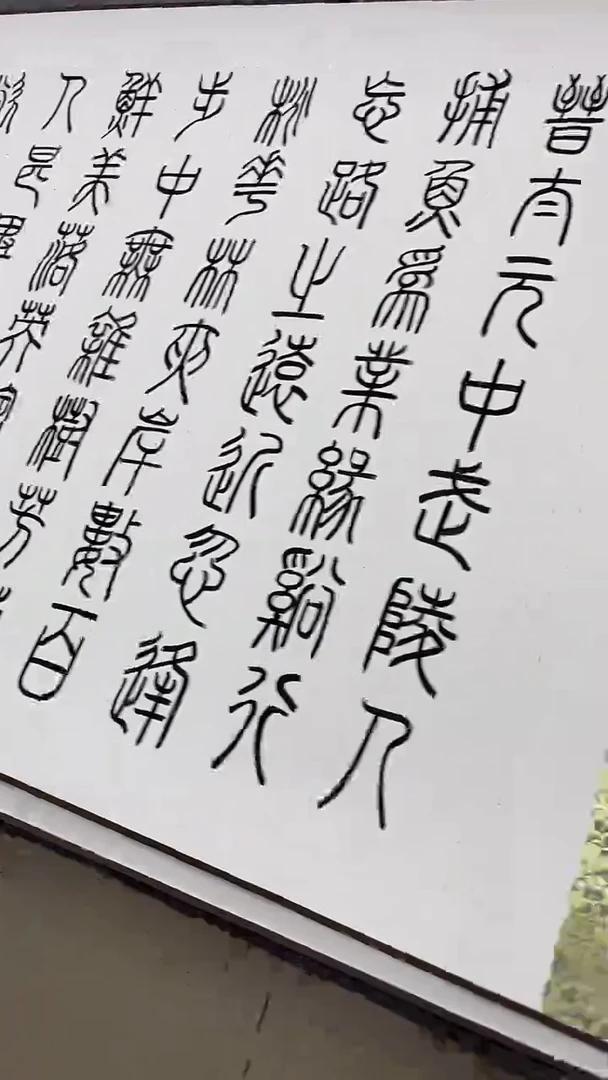 晉太元中武陵人
捕魚為業緣谿行
忘路之遠近忽逢
桃華林夾岸數百
步中無雜樹芳
鮮美落英
人甚